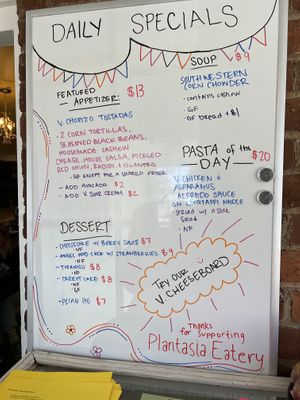 DAILY SPECIALS
FEATURED
- APPETIZER: - $13
V. CHORIZO TOSTADAS
- 2 CORN TORTILLAS,
SEASONED BLACK BEANS,
HOUSEMADE CASHEW
CHEESE, HOUSE SALSA, PICKLED
RED ONION, RADISH & CILANTRO
- GF EXCEPT FOR A SHARED FRYER
- ADD AVOCADO $2
- ADD V. SOUR CREAM $2
DESSERT
- CHEESECAKE W/ BERRY SAUCE $7
- NF
- ANGEL FOOD CAKE W/ STRAWBERRIES $9
- NF
- TIRAMISU $8
- NF
- CARROT CAKE $8
- NF
- GF
- PECAN PIE $7
SOUP $9
SOUTHWESTERN
CORN CHOWDER
- contains cashew
- GF
- GF Bread + $1
PASTA of the
- DAY - $20
V. CHICKEN &
ASPARAGUS
ALFREDO SAUCE
ON CAVATAPPI NOODLE
- Served w/ a side
Salad
- NF
TRY OUR
V. CHEESEBOARD
Thanks
for Supporting
Plantasia Eatery